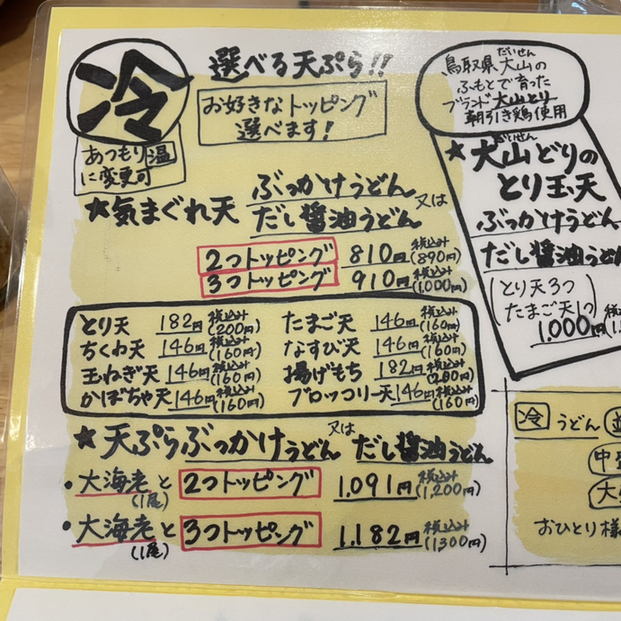 冷
選べる天ぷら!!
お好きなトッピング
選べます!
あつもり温
に変更可
★気まぐれ天 ぶっかけうどん又は
だし醤油うどん
2つトッピング 810円税込み(890円)
3つトッピング 910円税込み(1,000円)
とり天 182円税込み(200円)
ちくわ天 146円税込み(160円)
玉ねぎ天 146円税込み(160円)
かぼちゃ天 146円税込み(160円)
たまご天 146円税込み(160円)
なすび天 146円税込み(160円)
揚げもち 182円税込み(200円)
ブロッコリー天 146円税込み(160円)
★天ぷらぶっかけうどん又はだし醤油うどん
・大海老と2つトッピング 1,091円税込み(1,200円)
(1尾)
・大海老と3つトッピング 1,182円税込み(1300円)
(1尾)
だいせん
鳥取県大山の
ふもとで育った
ブランド大山どり
朝引き鶏使用
だいせん
★大山どりの
とり玉天
ぶっかけうどん
だし醤油うどん
(とり天3つ
たまご天1つ)
1,000円
冷うどん 並
中
大
おひとり様